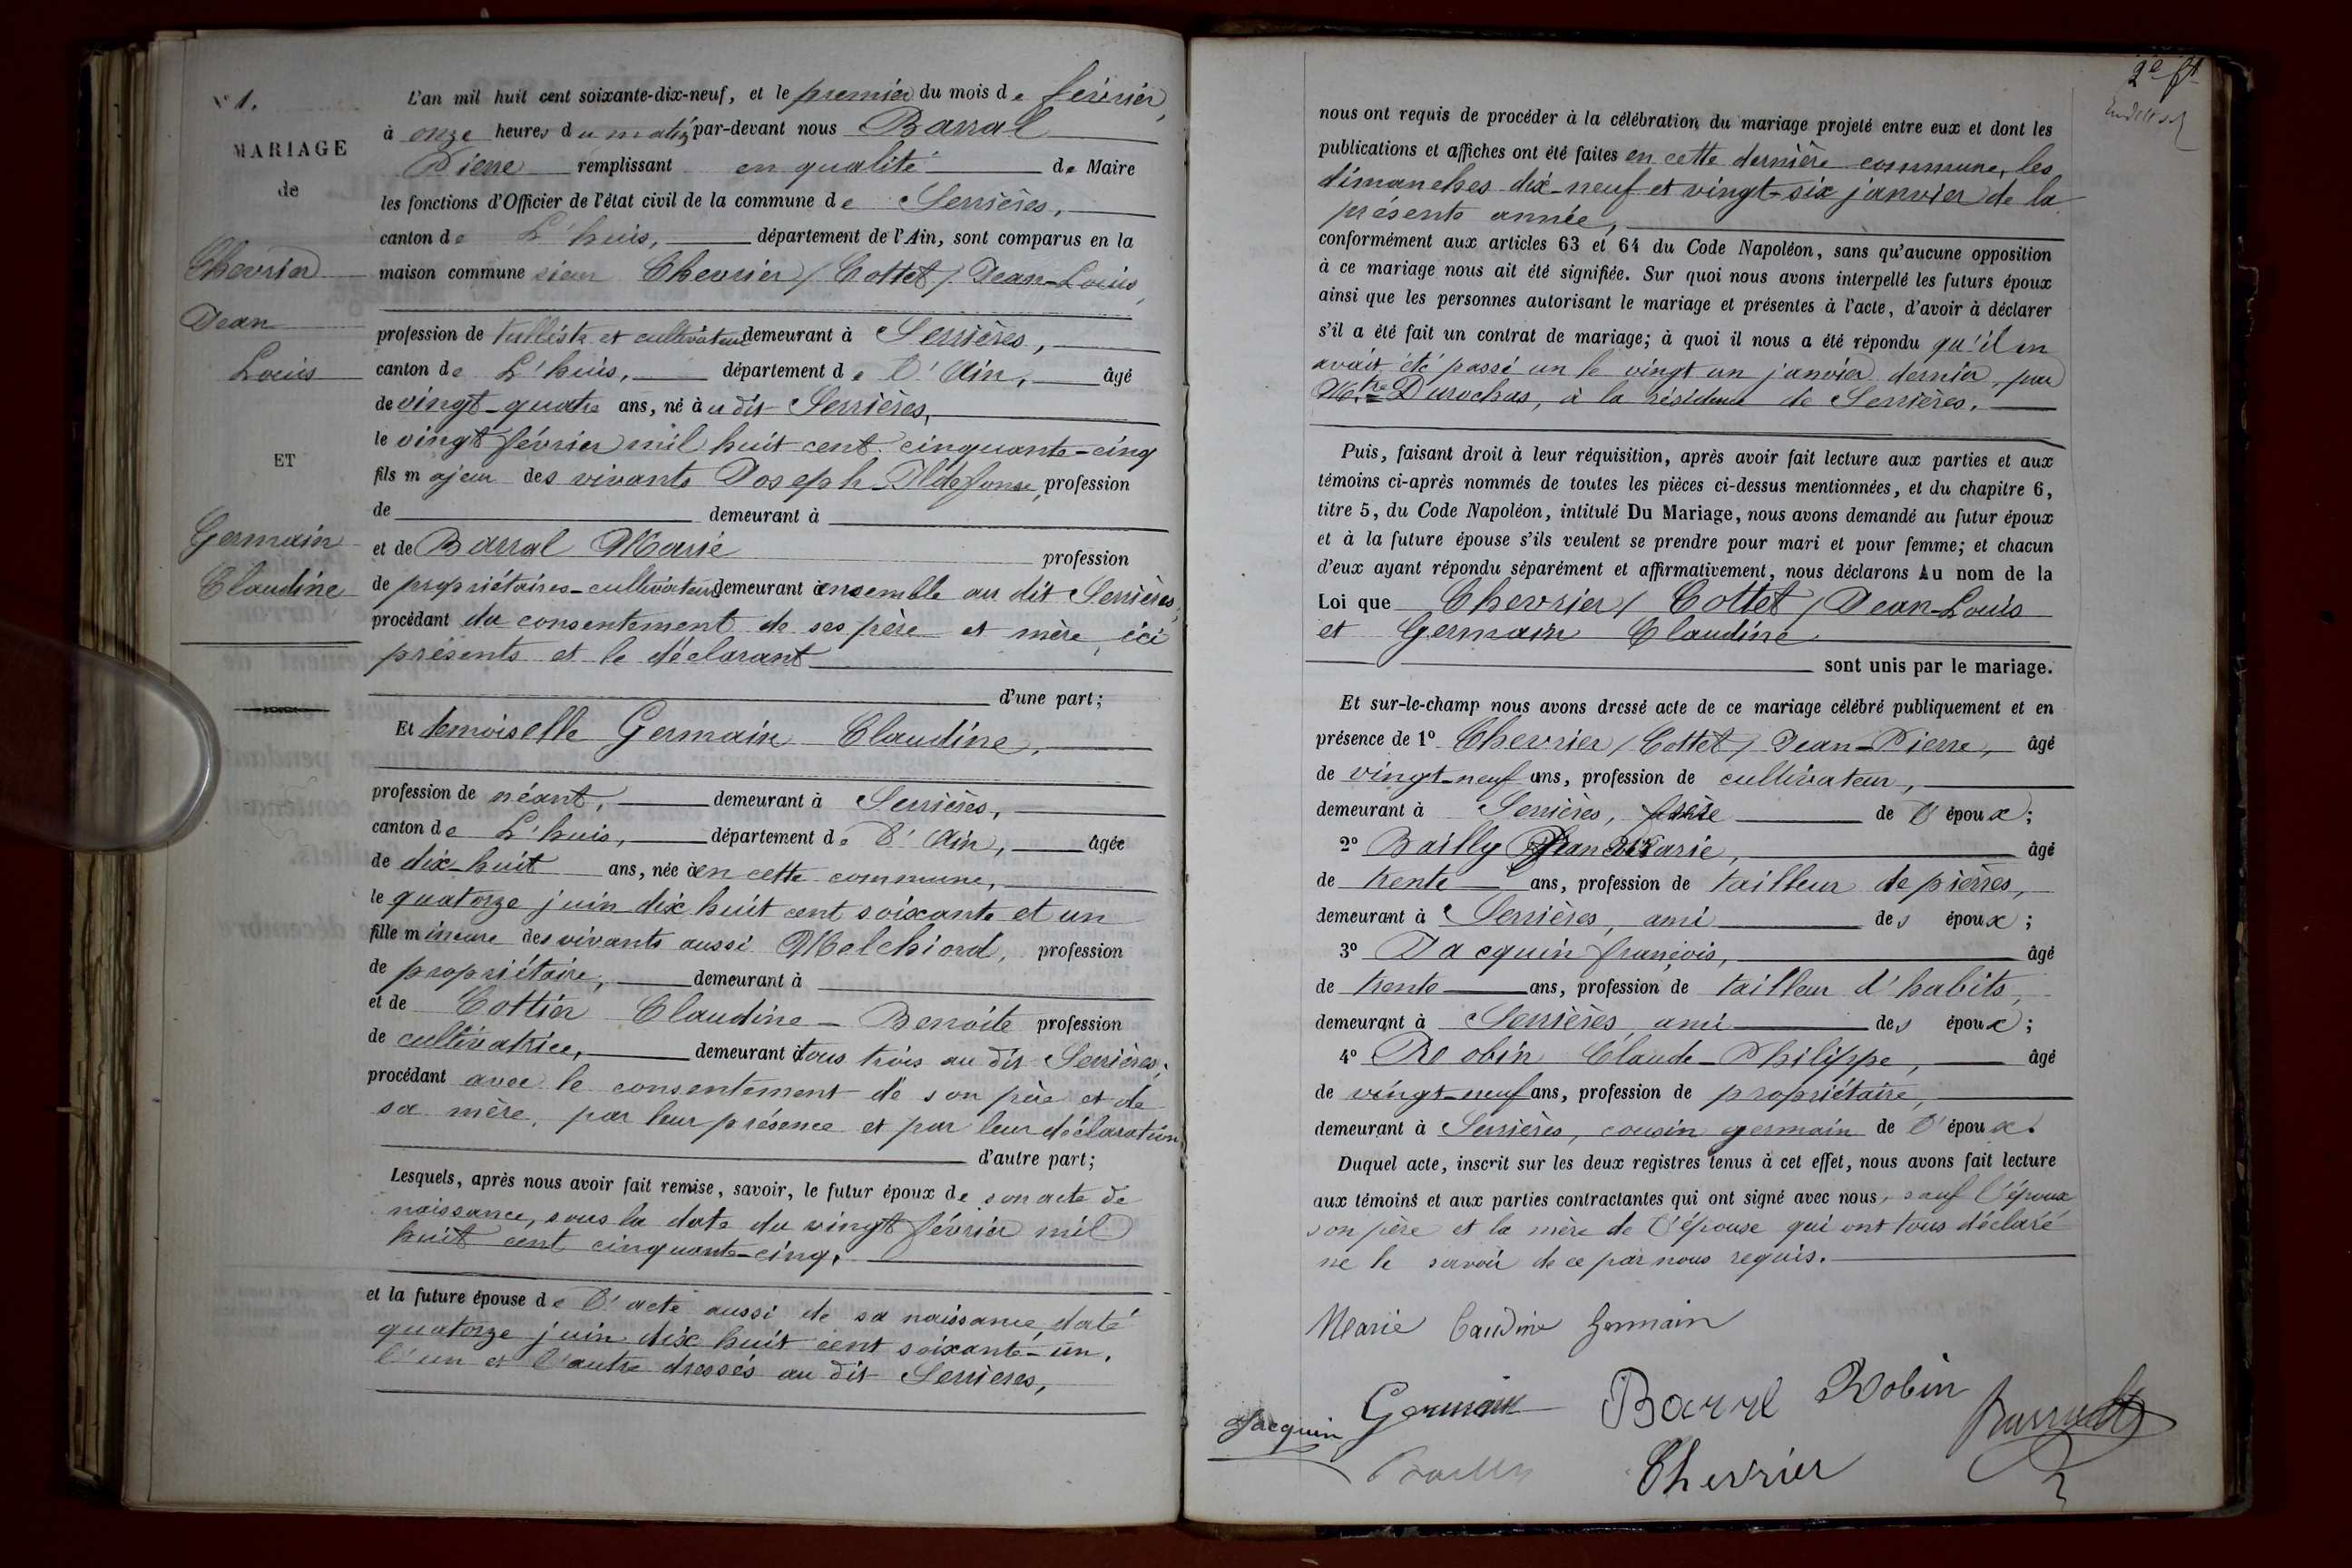 N° 1.
MARIAGE
de
Chevrier
Jean
Louis
ET
Germain
Claudine
L'an mil huit cent soixante-dix-neuf, et le premier du mois de février,
à onze heures du matin par-devant nous Barral
Pierre remplissant en qualité de Maire
les fonctions d'Officier de l'état civil de la commune de Serrières,
canton de L'huis, département de l'Ain, sont comparus en la
maison commune sieur Chevrier / Cottet / Jean-Louis,
profession de tulliste et cultivateur demeurant à Serrières,
canton de L'huis, département de l'Ain, âgé
de vingt-quatre ans, né à u dit Serrières,
le vingt février mil huit cent cinquante-cinq
fils majeur des vivants Joseph-Ildefonse, profession
de demeurant à
et de Barral Marie profession
de propriétaires-cultivateurs demeurant à ensemble au dit Serrières,
procédant du consentement de ses père et mère, ici
présents et le déclarant
d'une part;
Et demoiselle Germain Claudine,
profession de néant, demeurant à Serrières,
canton de L'huis, département de l'Ain, âgée
de dix-huit ans, née à en cette commune,
le quatorze juin dix huit cent soixante et un
fille mineure des vivants aussi Melchiord, profession
de propriétaire, demeurant à
et de Cottier Claudine-Benoite profession
de cultivatrice, demeurant à tous trois au dit Serrières;
procédant avec le consentement de son père et de
sa mère, par leur présence et par leur déclaration
d'autre part;
Lesquels, après nous avoir fait remise, savoir, le futur époux de son acte de
naissance, sous la date du vingt février mil
huit cent cinquante-cinq,
et la future épouse de l'acte aussi de sa naissance, daté
quatorze juin dix huit cent soixante-un,
l'un et l'autre dressés au dit Serrieres,
2e ft
nous ont requis de procéder à la célébration du mariage projeté entre eux et dont les
publications et affiches ont été faites en cette dernière commune, les
dimanches dix-neuf et vingt-six janvier de la
présente année,
conformément aux articles 63 et 64 du Code Napoléon, sans qu'aucune opposition
à ce mariage nous ait été signifiée. Sur quoi nous avons interpellé les futurs époux
ainsi que les personnes autorisant le mariage et présentes à l'acte, d'avoir à déclarer
s'il a été fait un contrat de mariage; à quoi il nous a été répondu qu'il en
avait été passé un le vingt un janvier dernier, par
Mtre Durochas, à la résidence de Serrières.
Puis, faisant droit à leur réquisition, après avoir fait lecture aux parties et aux
témoins ci-après nommés de toutes les pièces ci-dessus mentionnées, et du chapitre 6,
titre 5, du Code Napoléon, intitulé Du Mariage, nous avons demandé au futur époux
et à la future épouse s'ils veulent se prendre pour mari et pour femme; et chacun
d'eux ayant répondu séparément et affirmativement, nous déclarons Au nom de la
Loi que Chevrier / Cottet / Jean-Louis
et Germain Claudine
sont unis par le mariage.
Et sur-le-champ nous avons dressé acte de ce mariage célébré publiquement et en
présence de 1° Chevrier / Cottet / Jean-Pierre, âgé
de vingt-neuf ans, profession de cultivateur,
demeurant à Serrières, frère de l'époux;
2° Bailly Marie, âgé
de trente ans, profession de tailleur de pierres,
demeurant à Serrières, ami des époux;
3° Jacquin françois, âgé
de trente ans, profession de tailleur d'habits,
demeurant à Serrières, ami des époux;
4° Robin Claude-Philippe, âgé
de vingt-neuf ans, profession de propriétaire,
demeurant à Serrières, cousin germain de l'époux.
Duquel acte, inscrit sur les deux registres tenus à cet effet, nous avons fait lecture
aux témoins et aux parties contractantes qui ont signé avec nous, sauf l'époux
son père et la mère de l'épouse qui ont tous déclaré
ne le savoir de ce par nous requis.
Marie Caudine Germain
Jacquin Germain Barrel Robin
Bailly Chevrier